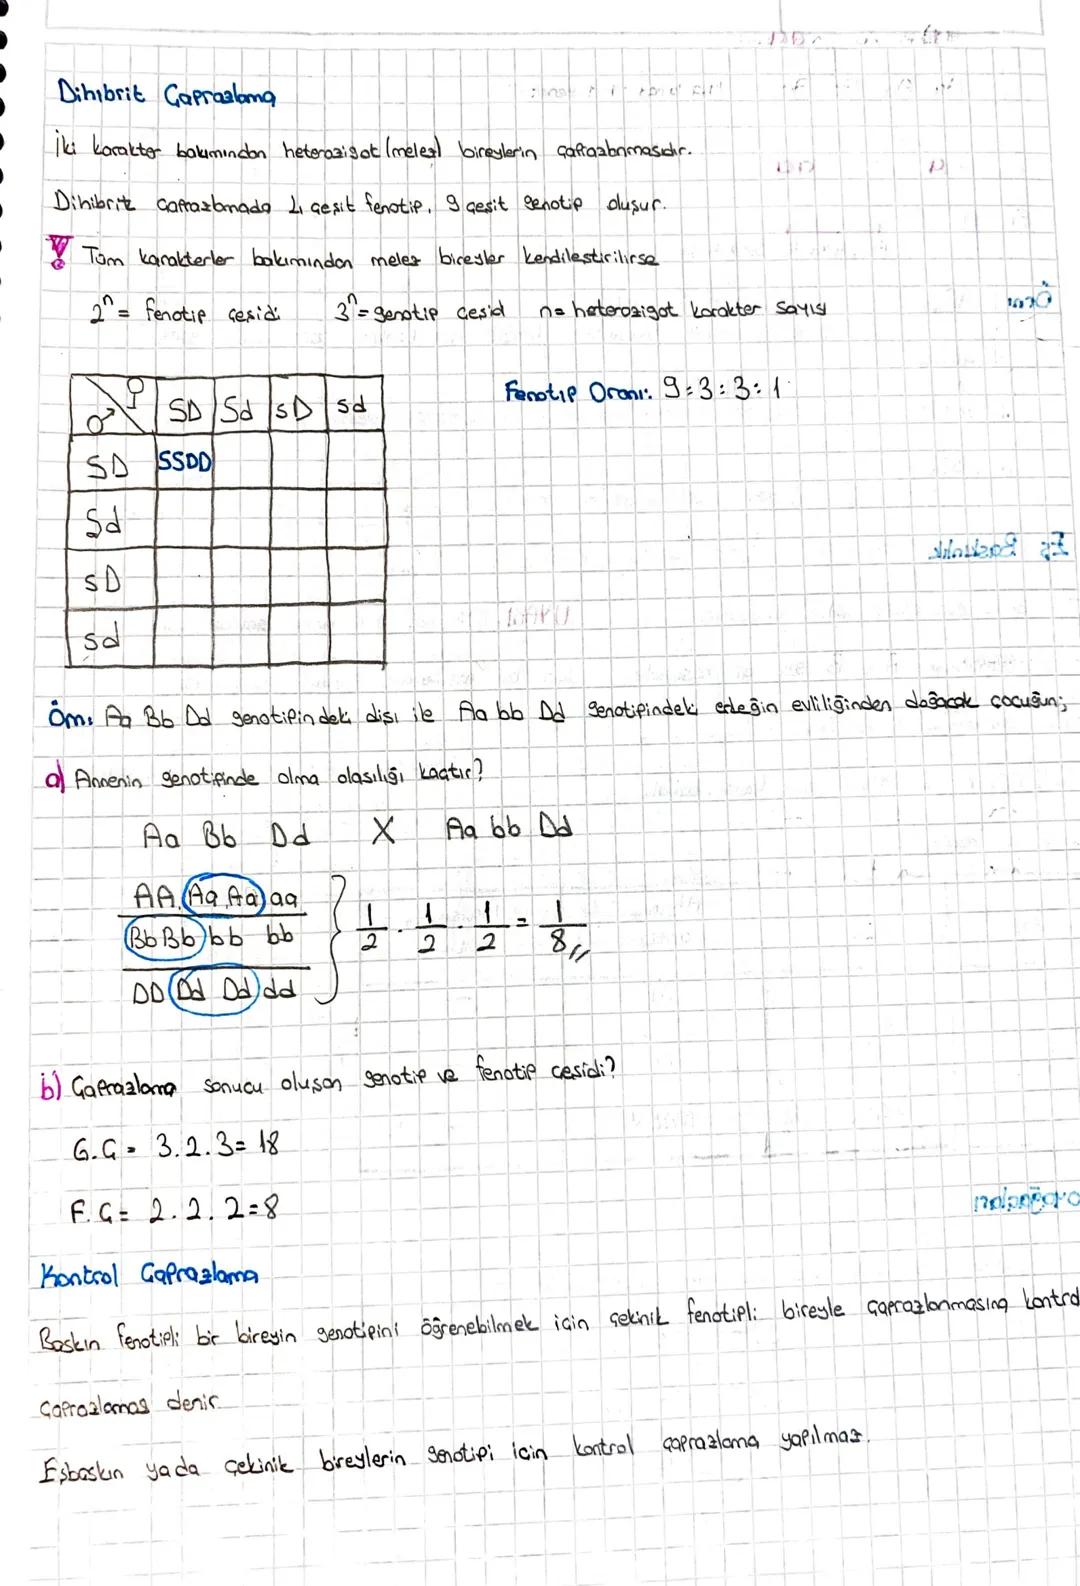 Dihibrit Çaprazlama
İki karakter bakımından heterozigot (melez) bireylerin çaprazlanmasıdır.
Dihibrit çaprazlamada 4 çeşit fenotip, 9 çeşit genotip oluşur.
! Tüm karakterler bakımından melez bireyler kendileştirilirse
2ⁿ = fenotip çeşidi 3ⁿ = genotip çeşid n = heterozigot karakter sayısı
Fenotip Oranı: 9:3:3:1
♀ ♂ SD Sd sD sd
SD SSDD
Sd
sD
sd
Örn: Aa Bb Dd genotipindeki dişi ile Aa bb Dd genotipindeki erkeğin evliliğinden doğacak çocuğun;
a) Annenin genotipinde olma olasılığı kaçtır?
Aa Bb Dd X Aa bb Dd
AA, Aa Aa aa
Bb Bb bb bb } 1/2 . 1/2 . 1/2 = 1/8 //
DD Dd Dd dd
b) Çaprazlama sonucu oluşan genotip ve fenotip çeşidi?
G.Ç = 3.2.3 = 18
F.Ç = 2.2.2 = 8
Kontrol Çaprazlama
Baskın fenotipli bir bireyin genotipini öğrenebilmek için çekinik fenotipli bireyle çaprazlanmasına kontrol
çaprazlaması denir.
Eşbaskın yada çekinik bireylerin genotipi için kontrol çaprazlama yapılmaz.